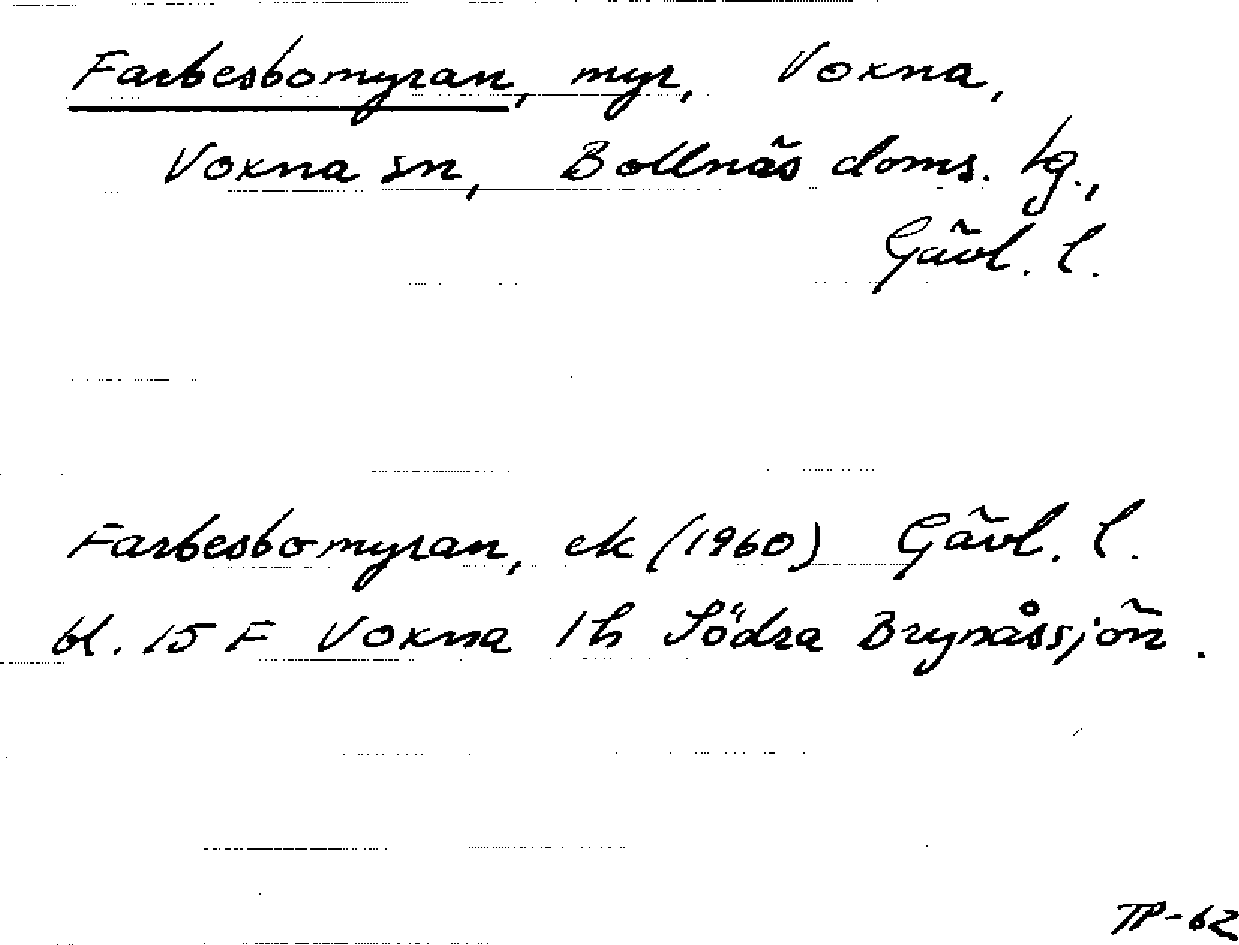 Farbesbomyran, myr, Voxna,
Voxna sn, Bollnäs doms. tg.,
Gävl. l.
Farbesbomyran, ek (1960) Gävl. l.
bl. 15 F Voxna 1 h Södra Brynåssjön.
TP-62